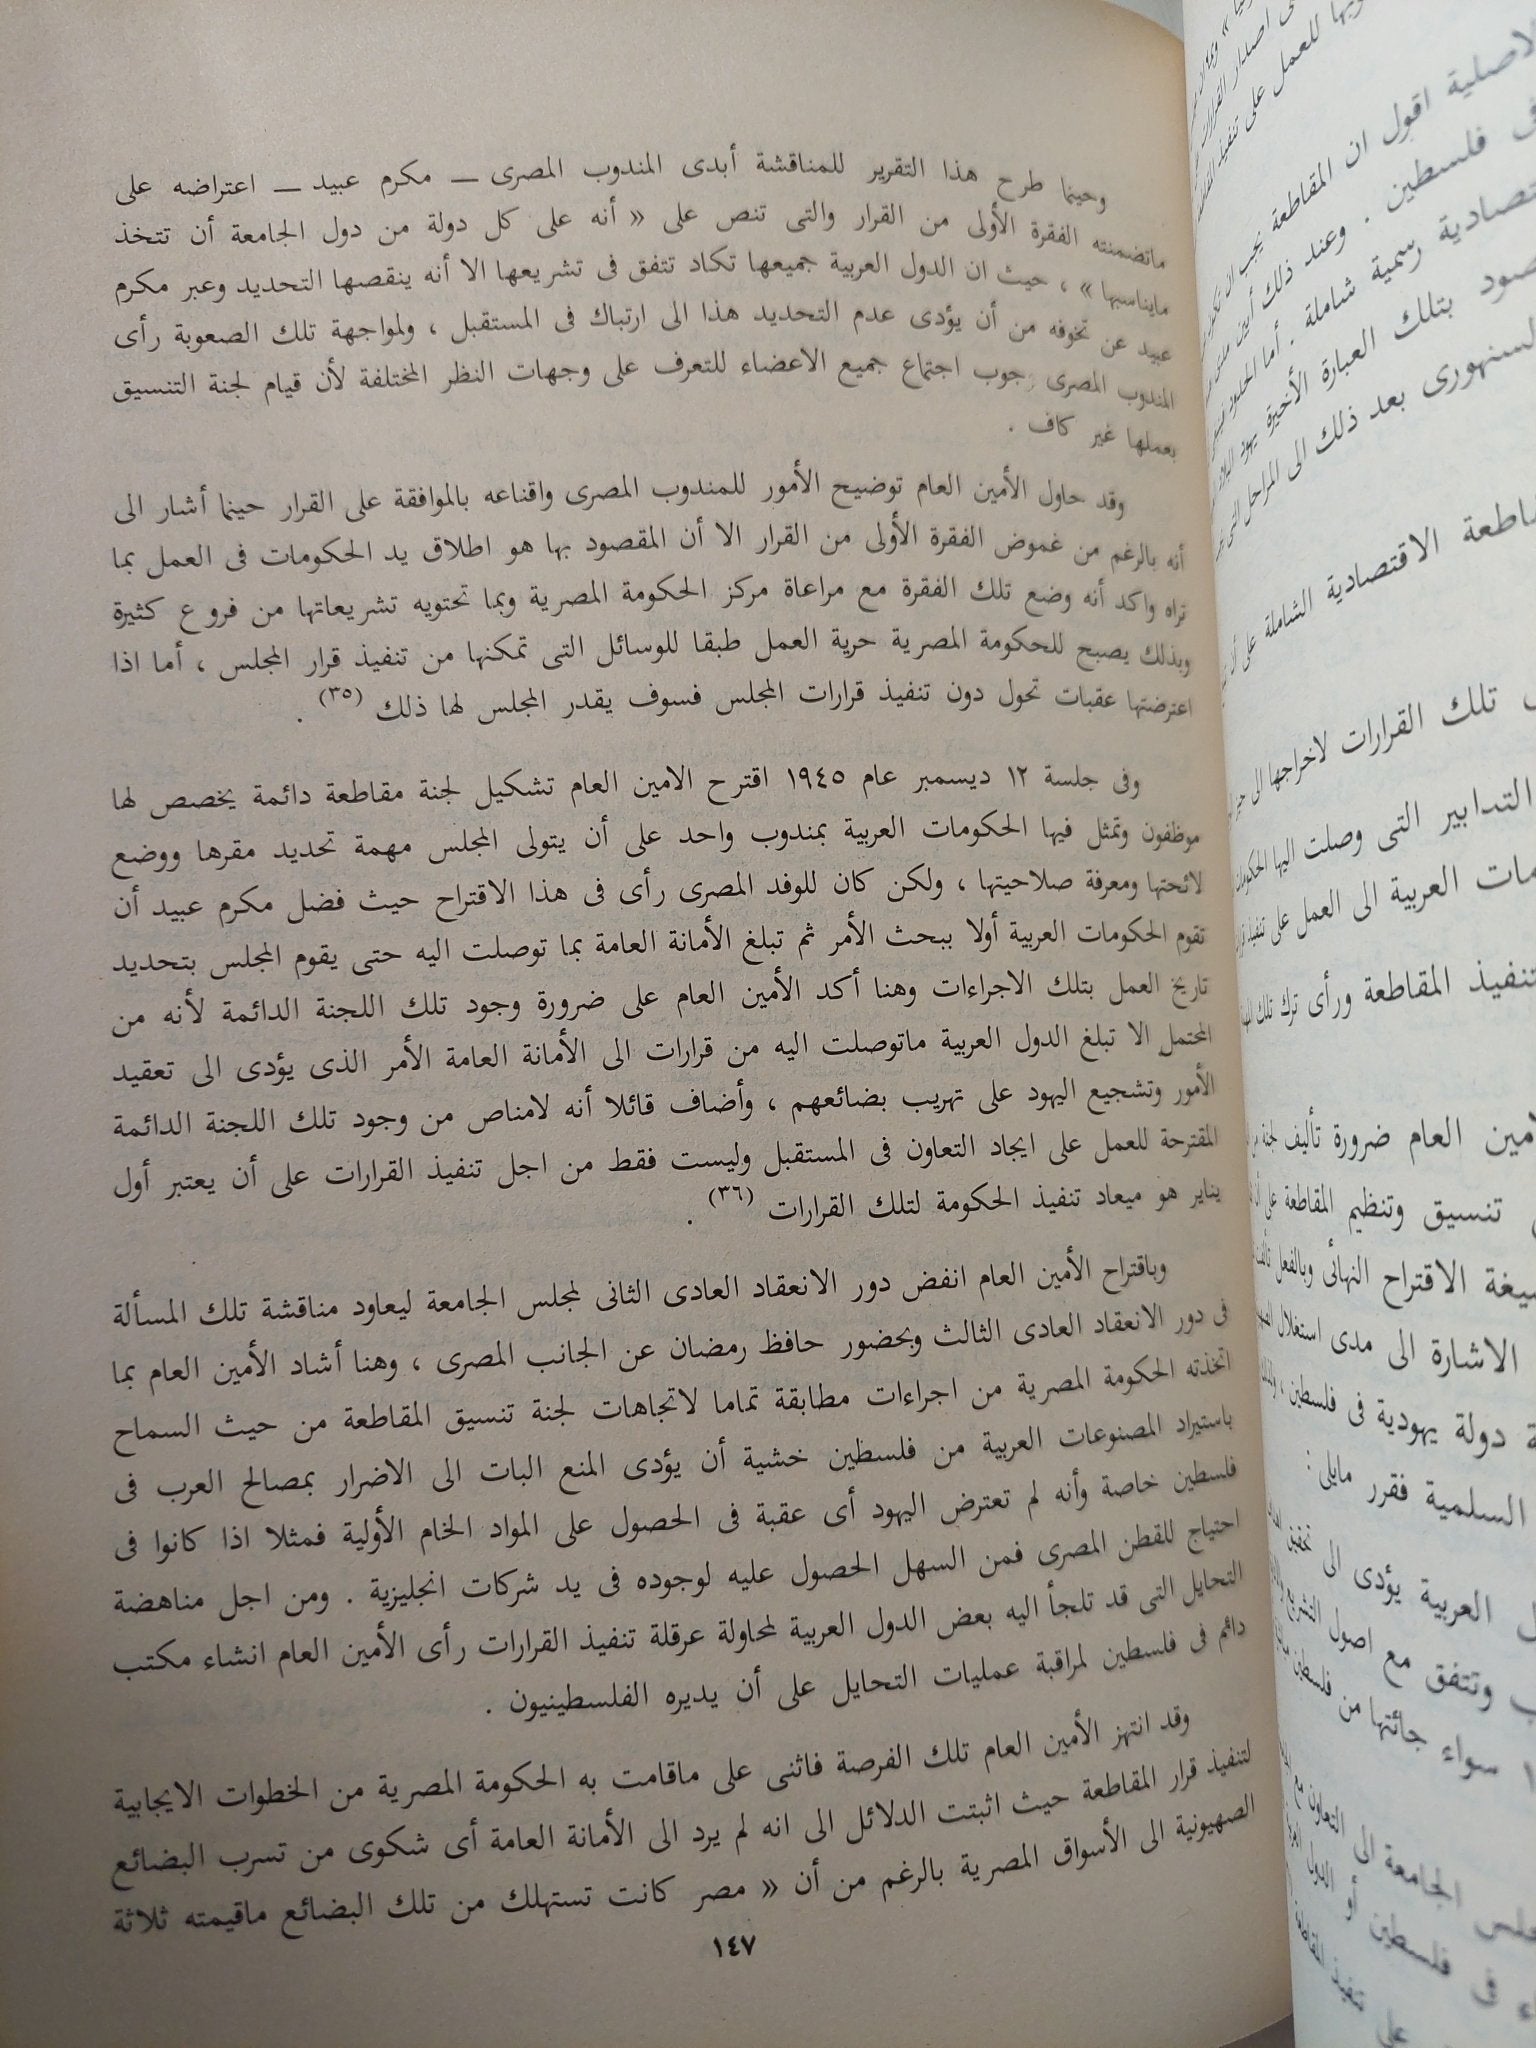 وحينما طرح هذا التقرير للمناقشة أبدى المندوب المصرى — مكرم عبيد — اعتراضه على
ماتضمنته الفقرة الأولى من القرار والتى تنص على « أنه على كل دولة من دول الجامعة أن تتخذ
مايناسبها » ، حيث ان الدول العربية جميعها تكاد تتفق فى تشريعها الا أنه ينقصها التحديد وعبر مكرم
عبيد عن تخوفه من أن يؤدى عدم التحديد هذا الى ارتباك فى المستقبل ، ولمواجهة تلك الصعوبة رأى
المندوب المصرى وجوب اجتماع جميع الاعضاء للتعرف على وجهات النظر المختلفة لأن قيام لجنة التنسيق
بعملها غير كاف .
وقد حاول الأمين العام توضيح الأمور للمندوب المصرى واقناعه بالموافقة على القرار حينما أشار الى
أنه بالرغم من غموض الفقرة الأولى من القرار الا أن المقصود بها هو اطلاق يد الحكومات فى العمل بما
تراه واكد أنه وضع تلك الفقرة مع مراعاة مركز الحكومة المصرية وبما تحتويه تشريعاتها من فروع كثيرة
وبذلك يصبح للحكومة المصرية حرية العمل طبقا للوسائل التى تمكنها من تنفيذ قرار المجلس ، أما اذا
اعترضتها عقبات تحول دون تنفيذ قرارات المجلس فسوف يقدر المجلس لها ذلك (٣٥) .
وفى جلسة ١٢ ديسمبر عام ١٩٤٥ اقترح الامين العام تشكيل لجنة مقاطعة دائمة يخصص لها
موظفون وتمثل فيها الحكومات العربية بمندوب واحد على أن يتولى المجلس مهمة تحديد مقرها ووضع
لائحتها ومعرفة صلاحيتها ، ولكن كان للوفد المصرى رأى فى هذا الاقتراح حيث فضل مكرم عبيد أن
تقوم الحكومات العربية أولا ببحث الأمر ثم تبلغ الأمانة العامة بما توصلت اليه حتى يقوم المجلس بتحديد
تاريخ العمل بتلك الاجراءات وهنا أكد الأمين العام على ضرورة وجود تلك اللجنة الدائمة لأنه من
المحتمل الا تبلغ الدول العربية ماتوصلت اليه من قرارات الى الأمانة العامة الأمر الذى يؤدى الى تعقيد
الأمور وتشجيع اليهود على تهريب بضائعهم ، وأضاف قائلا أنه لامناص من وجود تلك اللجنة الدائمة
المقترحة للعمل على ايجاد التعاون فى المستقبل وليست فقط من اجل تنفيذ القرارات على أن يعتبر أول
يناير هو ميعاد تنفيذ الحكومة لتلك القرارات (٣٦) .
وباقتراح الأمين العام انفض دور الانعقاد العادى الثانى لمجلس الجامعة ليعاود مناقشة تلك المسألة
فى دور الانعقاد العادى الثالث وبحضور حافظ رمضان عن الجانب المصرى ، وهنا أشاد الأمين العام بما
اتخذته الحكومة المصرية من اجراءات مطابقة تماما لاتجاهات لجنة تنسيق المقاطعة من حيث السماح
باستيراد المصنوعات العربية من فلسطين خشية أن يؤدى المنع البات الى الاضرار بمصالح العرب فى
فلسطين خاصة وأنه لم تعترض اليهود أى عقبة فى الحصول على المواد الخام الأولية فمثلا اذا كانوا فى
احتياج للقطن المصرى فمن السهل الحصول عليه لوجوده فى يد شركات انجليزية . ومن اجل مناهضة
التحايل التى قد تلجأ اليه بعض الدول العربية لمحاولة عرقلة تنفيذ القرارات رأى الأمين العام انشاء مكتب
دائم فى فلسطين لمراقبة عمليات التحايل على أن يديره الفلسطينيون .
وقد انتهز الأمين العام تلك الفرصة فاثنى على ماقامت به الحكومة المصرية من الخطوات الايجابية
لتنفيذ قرار المقاطعة حيث اثبتت الدلائل الى انه لم يرد الى الأمانة العامة أى شكوى من تسرب البضائع
الصهيونية الى الأسواق المصرية بالرغم من أن « مصر كانت تستهلك من تلك البضائع ماقيمته ثلاثة
١٤٧
اقول ان المقاطعة يجب ان
فلسطين . وعند ذلك
رسمية شاملة . أما
بتلك العبارة الأخيرة يهود
السنهورى بعد ذلك الى المراحل التى
الاقتصادية الشاملة على أن
تلك القرارات لاخراجها الى
التدابير التى وصلت اليها
العربية الى العمل على تنفيذ
تنفيذ المقاطعة ورأى ترك تلك
العام ضرورة تأليف لجنة
تنسيق وتنظيم المقاطعة على أن
الاقتراح النهائى وبالفعل
الاشارة الى مدى استغلال
دولة يهودية فى فلسطين ،
السلمية فقرر مايلى :
العربية يؤدى الى
وتتفق مع اصول
سواء جائتها من فلسطين
الجامعة الى التعاون
فى فلسطين أو